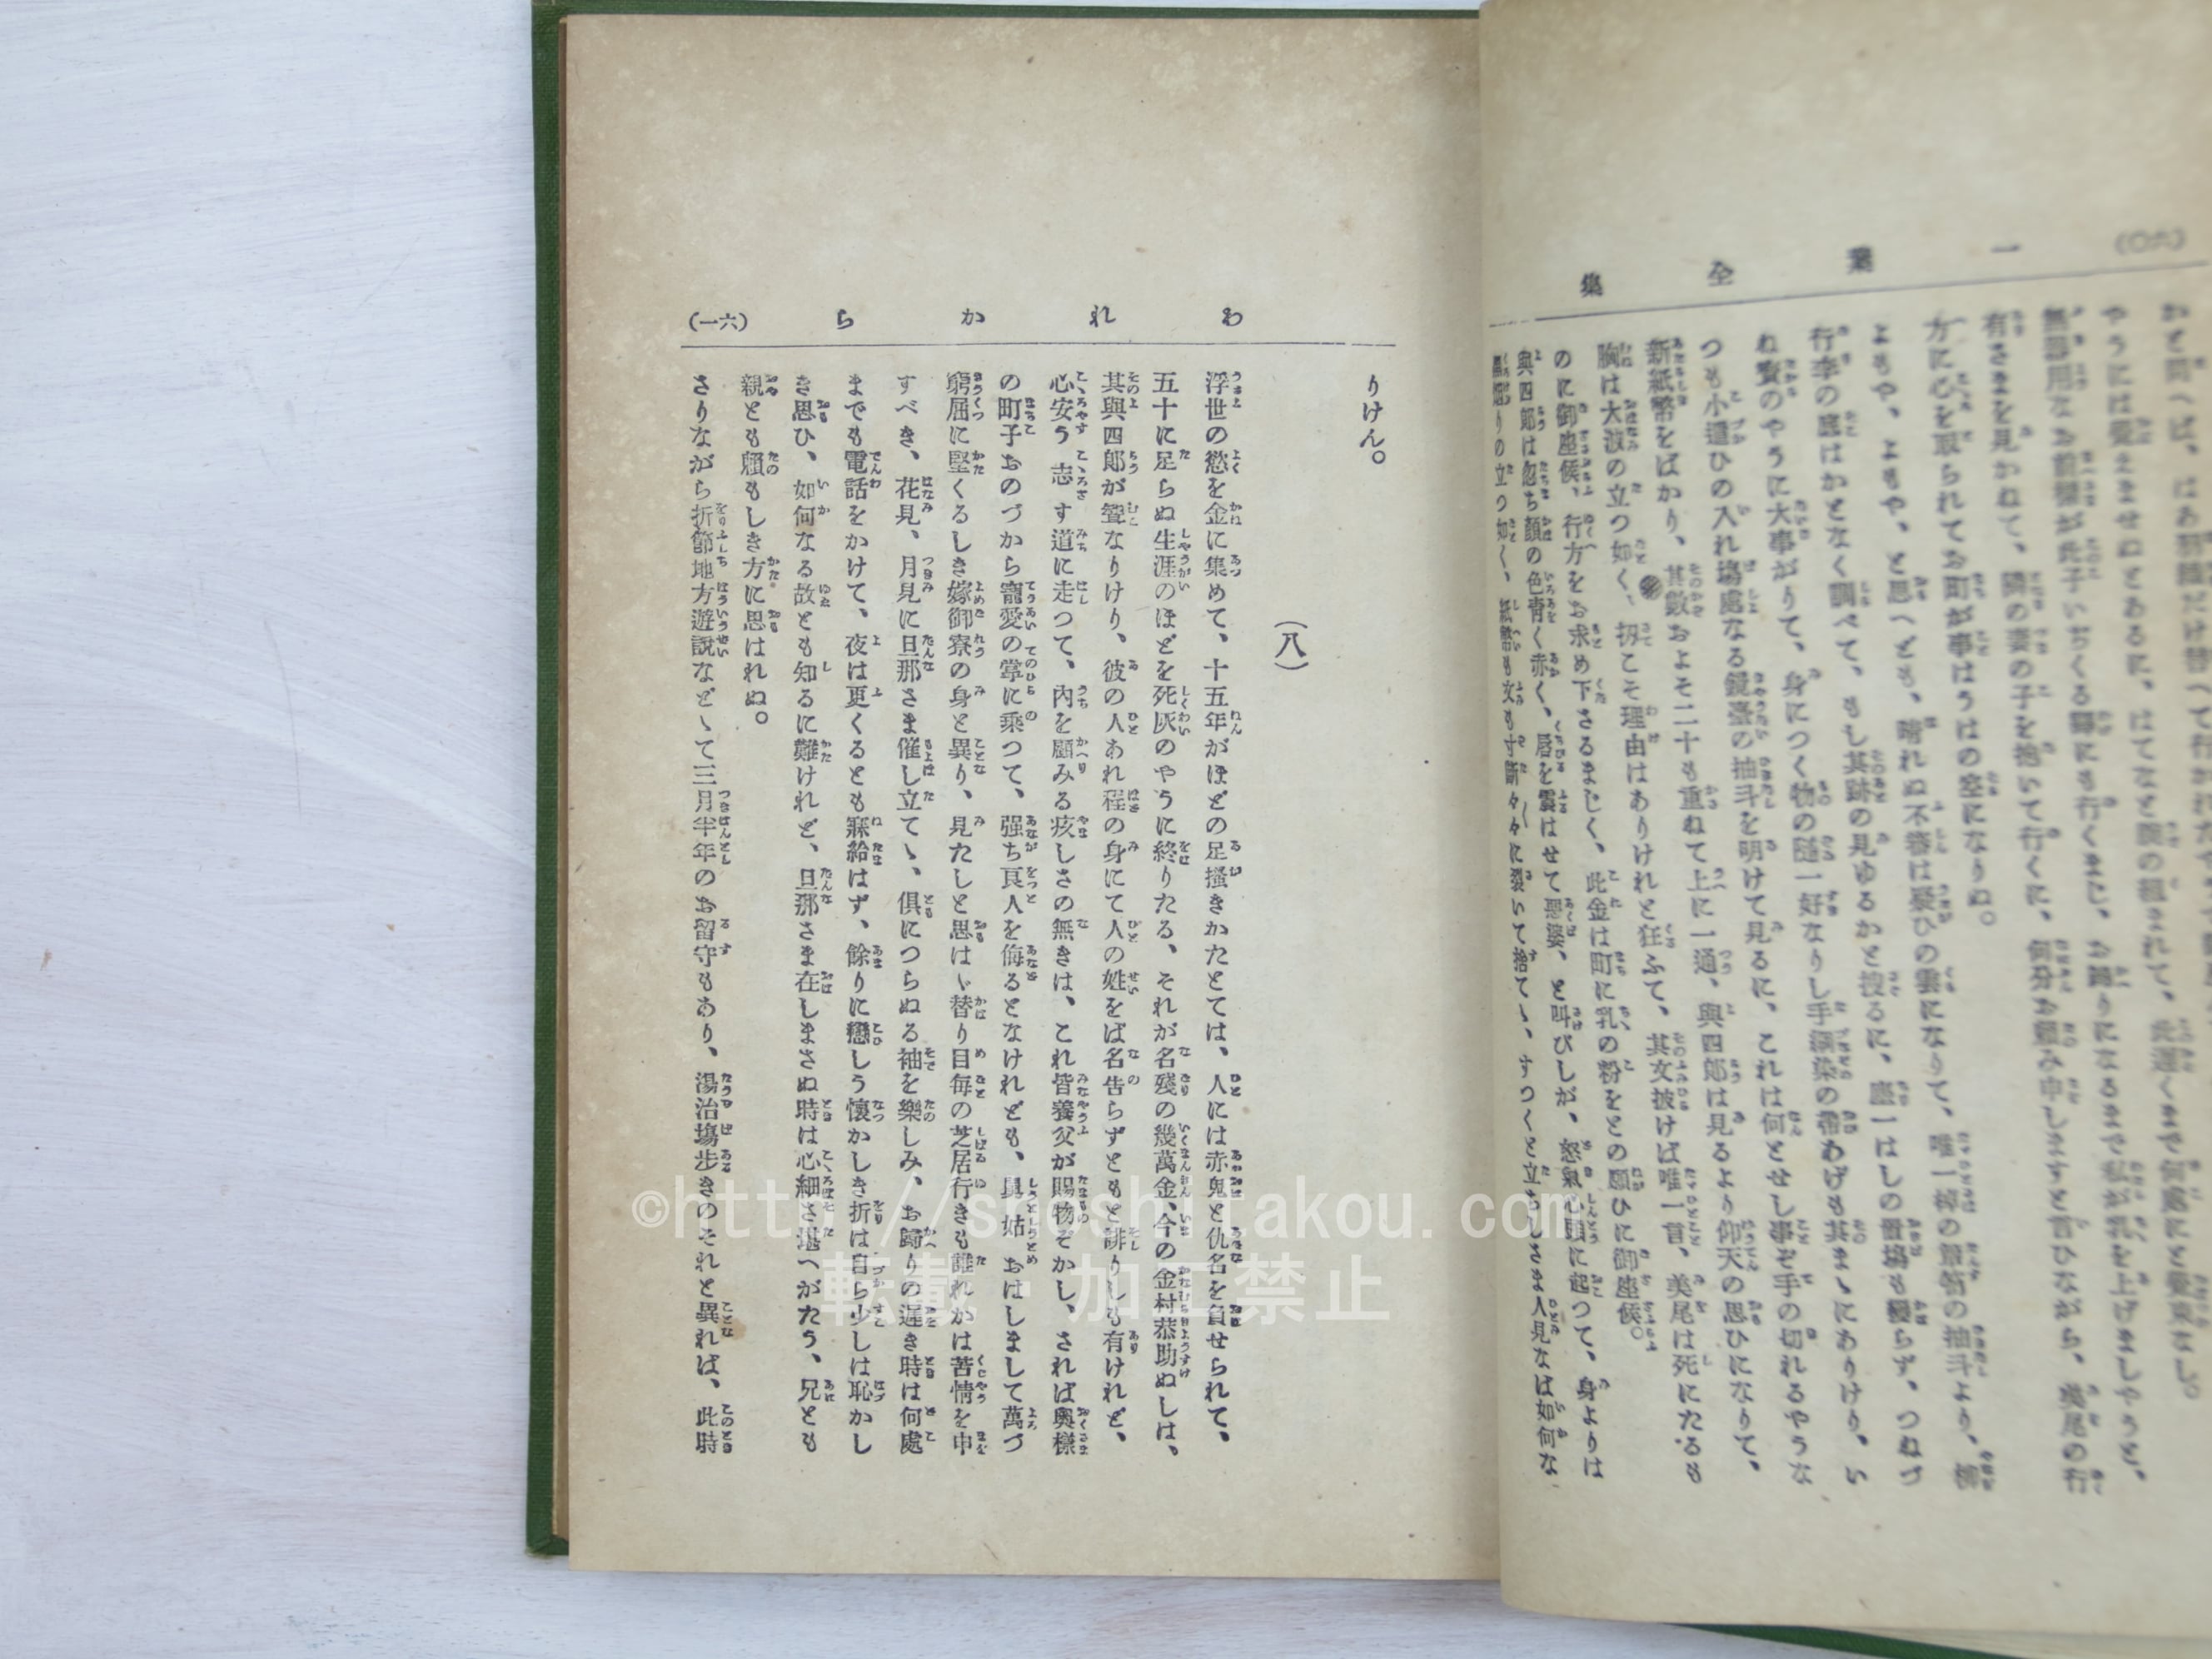 一葉全集
(六〇)
やうには覺えませぬとあるに、はてなと腕の組まれて、此遲くまで何處にと覺束なし。
無器用なお前樣が此子いぢくる譯にも行くまじ、お歸りになるまで私が乳を上げましやうと、
有さまを見かねて、隣の妻の子を抱いて行くに、何分お頼み申しますと言ひながら、美尾の行
方に心を取られてお町が事はうはの空になりぬ。
よもや、よもや、と思へども、晴れぬ不審は疑ひの雲になりて、唯一棹の箪笥の抽斗より、柳
行李の底はかとなく調べて、もし其跡の見ゆるかと捜るに、塵一はしの置塲も變らず、つねづ
ね寶のやうに大事がりて、身につく物の隨一好なりし手綱染の帶あげも其まゝにありけり、い
つも小遣ひの入れ塲處なる鏡臺の抽斗を明けて見るに、これは何とせし事ぞ手の切れるやうな
新紙幣をばかり、其數およそ二十も重ねて上に一通、與四郎は見るより仰天の思ひになりて、
胸は大波の立つ如く、扨こそ理由はありけれと狂ふて、其文披けば唯一言、美尾は死にたるも
のに御座候、行方をお求め下さるまじく、此金は町に乳の粉をとの願ひに御座候。
與四郎は忽ち顏の色青く赤く、唇を震はせて惡婆、と叫びしが、怒氣心頭に起つて、身よりは
黒烟りの立つ如く、紙幣も文も寸斷々々に裂いて捨てゝ、すつくと立ちしさま人見なば如何な
われから
(六一)
りけん。
(八)
浮世の慾を金に集めて、十五年がほどの足掻きかたとては、人には赤鬼と仇名を負せられて、
五十に足らぬ生涯のほどを死灰のやうに終りたる、それが名殘の幾萬金、今の金村恭助ぬしは、
其與四郎が聟なりけり、彼の人あれ程の身にて人の姓をば名告らずともと誹りしも有けれど、
心安う志す道に走つて、内を顧みる疚しさの無きは、これ皆養父が賜物ぞかし、されば奧樣
の町子おのづから寵愛の掌に乘つて、强ち良人を侮るとなけれども、舅姑おはしまして萬づ
窮屈に堅くるしき嫁御寮の身と異り、見たしと思はゞ替り目毎の芝居行きも誰れかは苦情を申
すべき、花見、月見に旦那さま催し立てゝ、倶につらぬる袖を樂しみ、お歸りの遲き時は何處
までも電話をかけて、夜は更くるとも寐給はず、餘りに戀しう懷かしき折は自ら少しは恥かし
き思ひ、如何なる故とも知るに難けれど、旦那さま在しまさぬ時は心細さ堪へがたう、兄とも
親とも頼もしき方に思はれぬ。
さりながら折節地方遊説などゝて三月半年のお留守もあり、湯治塲歩きのそれと異れば、此時
©http://shoshitakou.com
転載・加工禁止